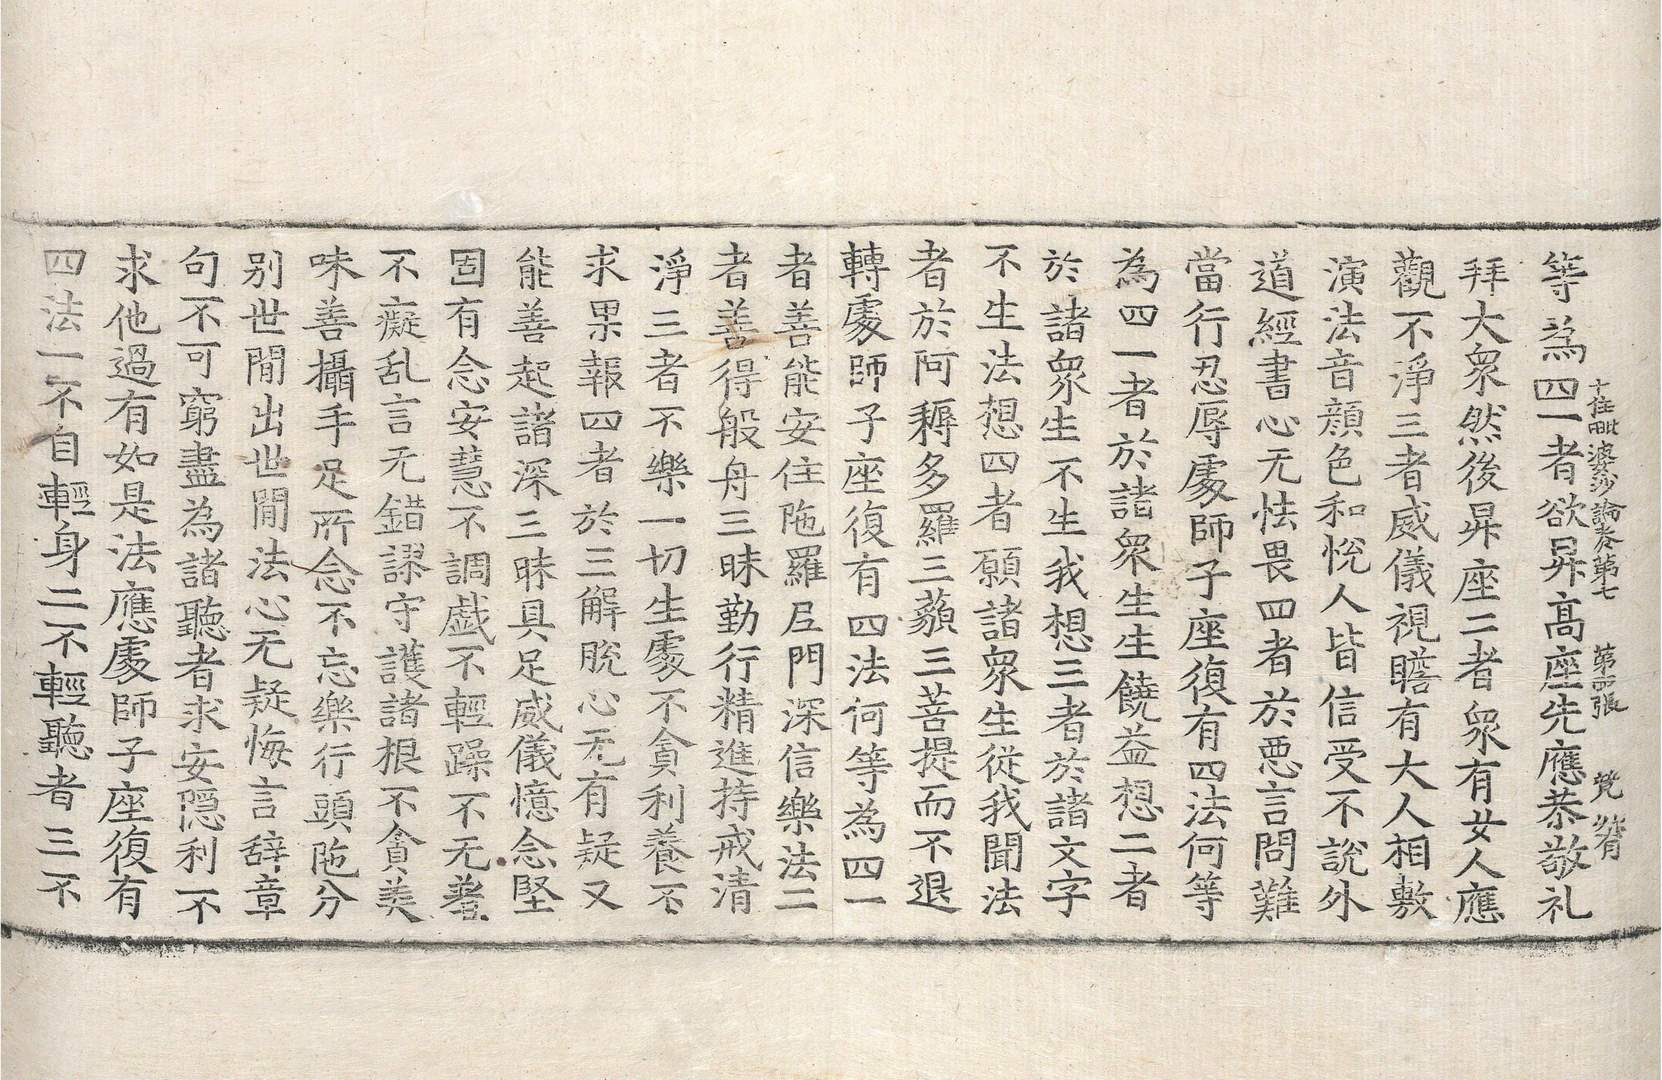 十住毗婆沙論卷第七 第四張 㲋
等為四一者欲昇高座先應恭敬礼
拜大衆然後昇座二者衆有女人應
觀不淨三者威儀視瞻有大人相敷
演法音顔色和悅人皆信受不說外
道經書心无怯畏四者於惡言問難
當行忍辱處師子座復有四法何等
為四一者於諸衆生生饒益想二者
於諸衆生不生我想三者於諸文字
不生法想四者願諸衆生從我聞法
者於阿耨多羅三藐三菩提而不退
轉處師子座復有四法何等為四一
者善能安住陁羅尼門深信樂法二
者善得般舟三昧勤行精進持戒清
淨三者不樂一切生處不貪利養不
求果報四者於三解脫心无有疑又
能善起諸深三昧具足威儀憶念堅
固有念安慧不調戲不輕躁不无羞
不癡乱言无錯謬守護諸根不貪美
味善攝手足所念不忘樂行頭陁分
别世閒出世閒法心无疑悔言辞章
句不可窮盡為諸聽者求安隱利不
求他過有如是法應處師子座復有
四法一不自輕身二不輕聽者三不